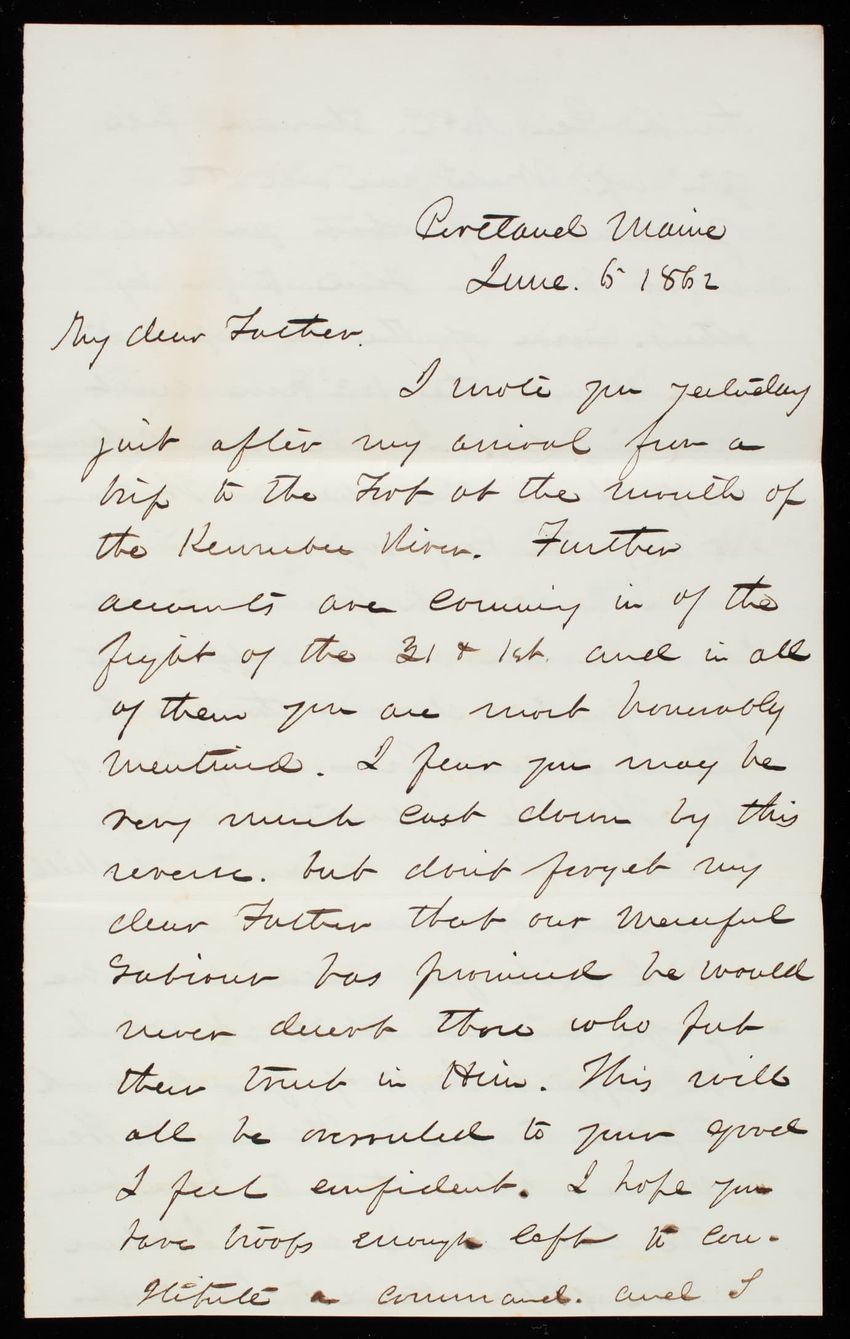 Portland Maine
June. 6 1862
My dear Father.
I wrote you yesterday
just after my arrival from a
trip to the Fort at the mouth of
the Kennebec River. Further
accounts are coming in of the
fight of the 31 & 1st. and in all
of them you are most honorably
mentioned. I fear you may be
very much cast down by this
reverse. but don't forget my
dear Father that our merciful
Saviour has promised he would
never desert those who put
their trust in Him. This will
all be overruled to your good
I feel confident. I hope you
have troops enough left to con-
stitute a command. and I